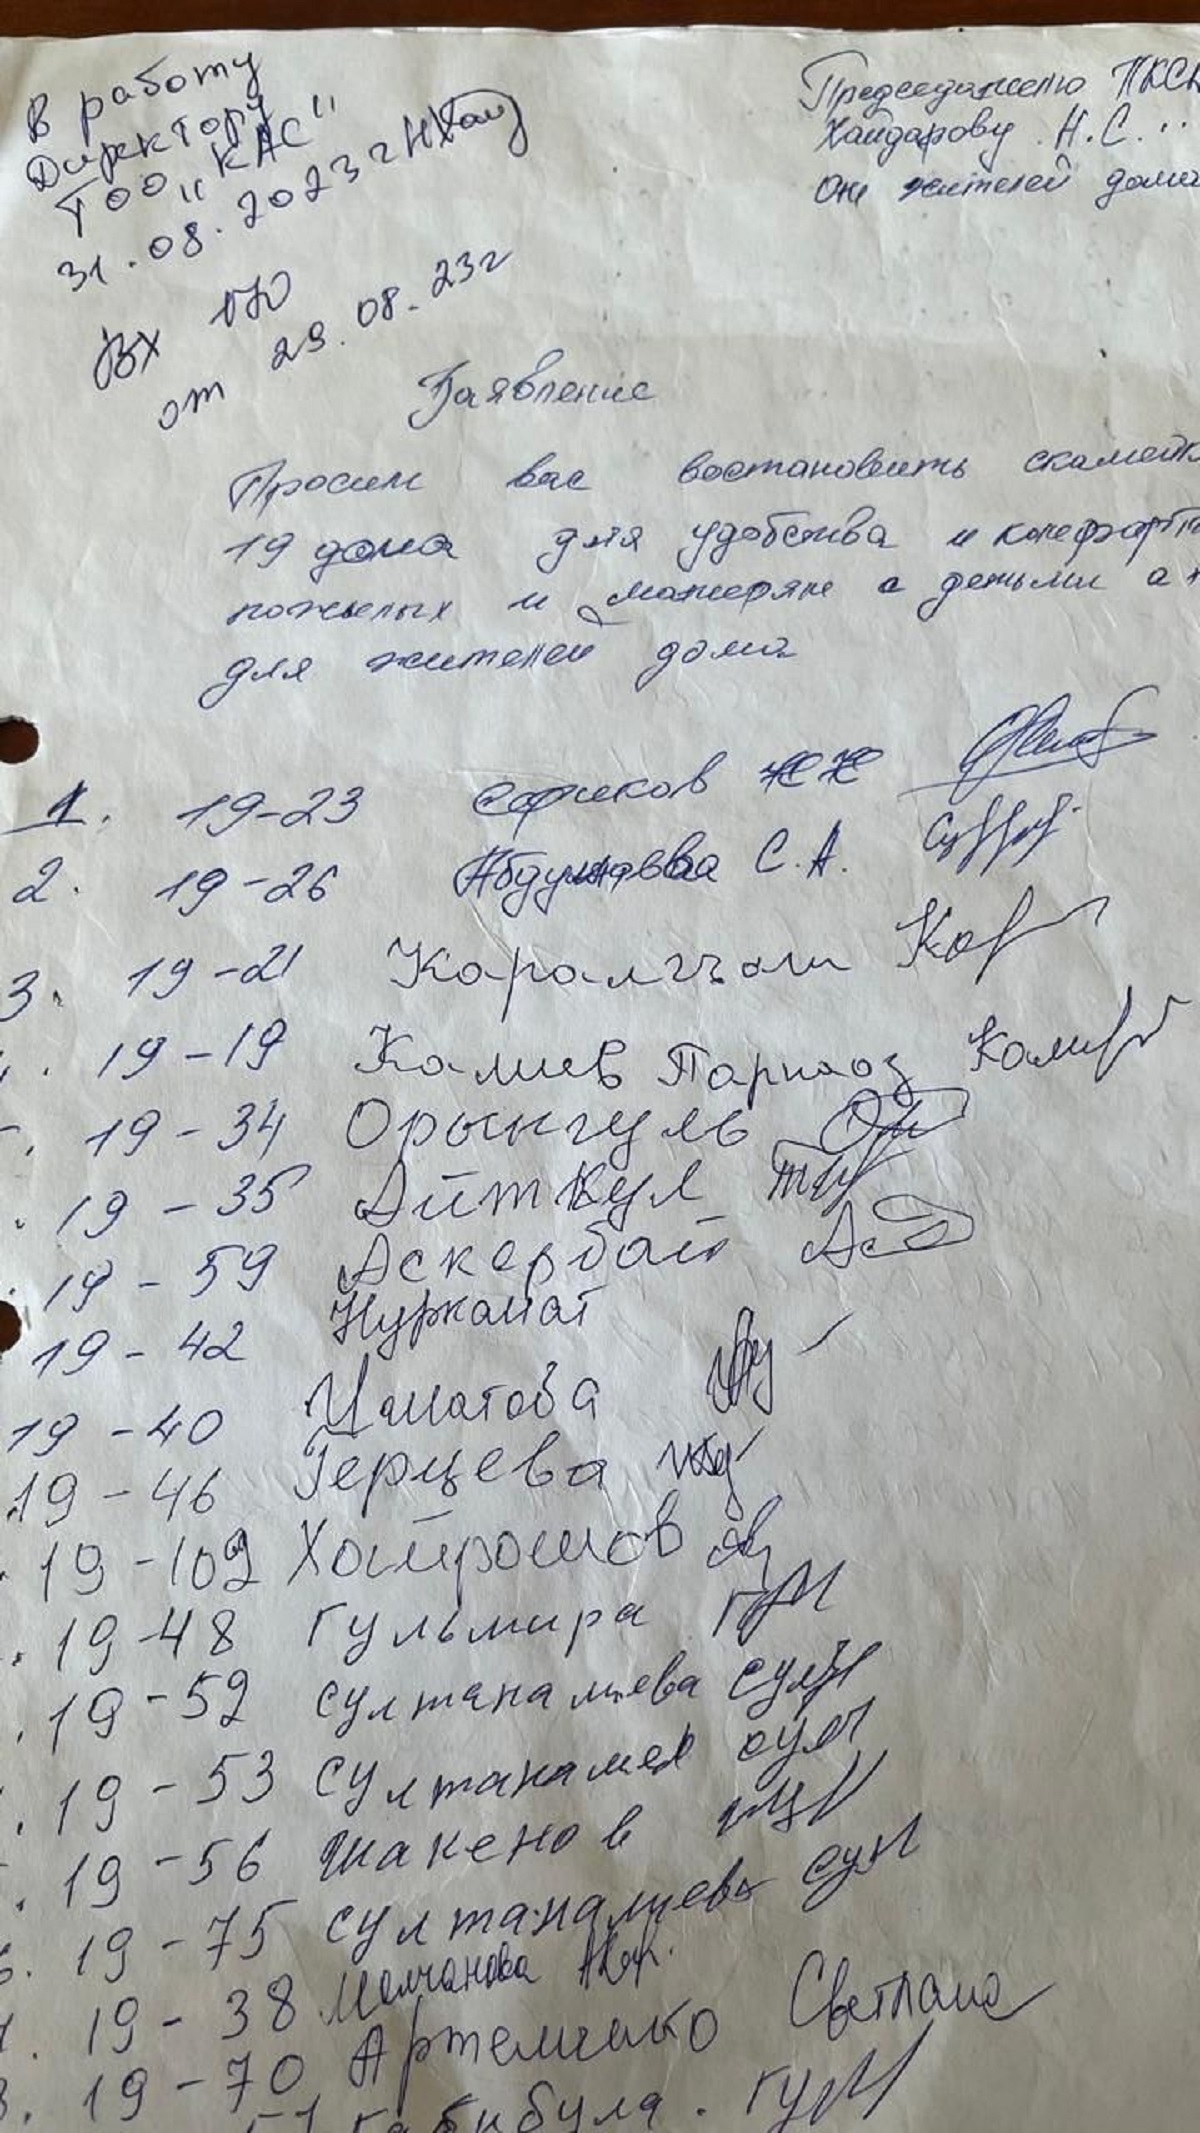 В работу
Директору
ТОО "КАС"
31.08.2023г
Вх 170
от 29.08.23г
Председателю ПКСК
Хайдарову Н.С.
От жителей дома
Заявление
Просим вас востановить скамейк
19 дома для удобства и комфорт
пожилых и матерям с детьми а
для жителей дома
1. 19-23 Сфиков
2. 19-26 С.А.
3. 19-21
19-19 Калиев Парнаоз
19-34 Орынгуль
19-35 Айткул
19-59 Аскербай
19-42 Нурканат
19-40 Исматова
19-46 Герцева
19-109 Хайрошов
19-48 Гульмира
19-52 Султаналиева
19-53 Султаналиев
19-56 Шакенов
19-75 Султаналиева
19-38 Молчанова
19-70 Артеменко Светлана
Габибула.